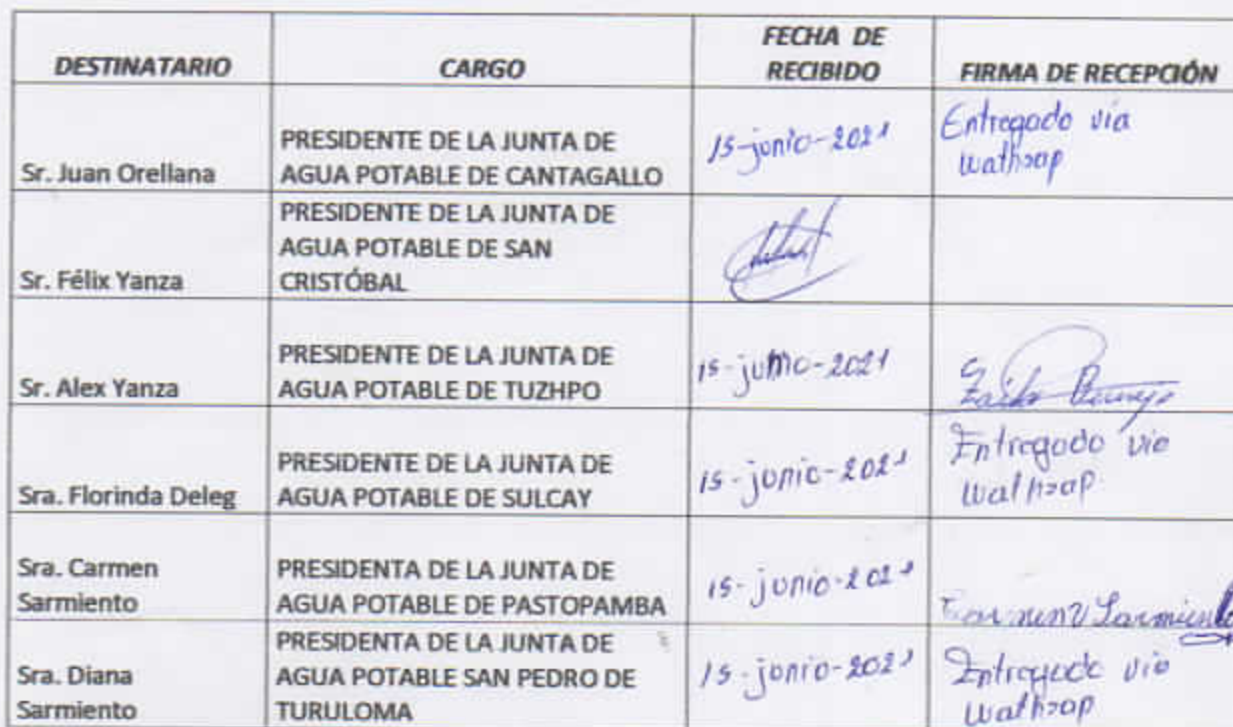 DESTINATARIO CARGO FECHA DE RECIBIDO FIRMA DE RECEPCIÓN
Sr. Juan Orellana
PRESIDENTE DE LA JUNTA DE
AGUA POTABLE DE CANTAGALLO
15-junio-2021
Entregado via
wathsap
Sr. Félix Yanza
PRESIDENTE DE LA JUNTA DE
AGUA POTABLE DE SAN
CRISTÓBAL
Sr. Alex Yanza
PRESIDENTE DE LA JUNTA DE
AGUA POTABLE DE TUZHPO
15-junio-2021
Sra. Florinda Deleg
PRESIDENTE DE LA JUNTA DE
AGUA POTABLE DE SULCAY
15-junio-2021
Entregado via
wathsap
Sra. Carmen
Sarmiento
PRESIDENTA DE LA JUNTA DE
AGUA POTABLE DE PASTOPAMBA
15-junio-2021
Sarmiento
Sra. Diana
Sarmiento
PRESIDENTA DE LA JUNTA DE
AGUA POTABLE SAN PEDRO DE
TURULOMA
15-junio-2021
Entregado via
wathsap